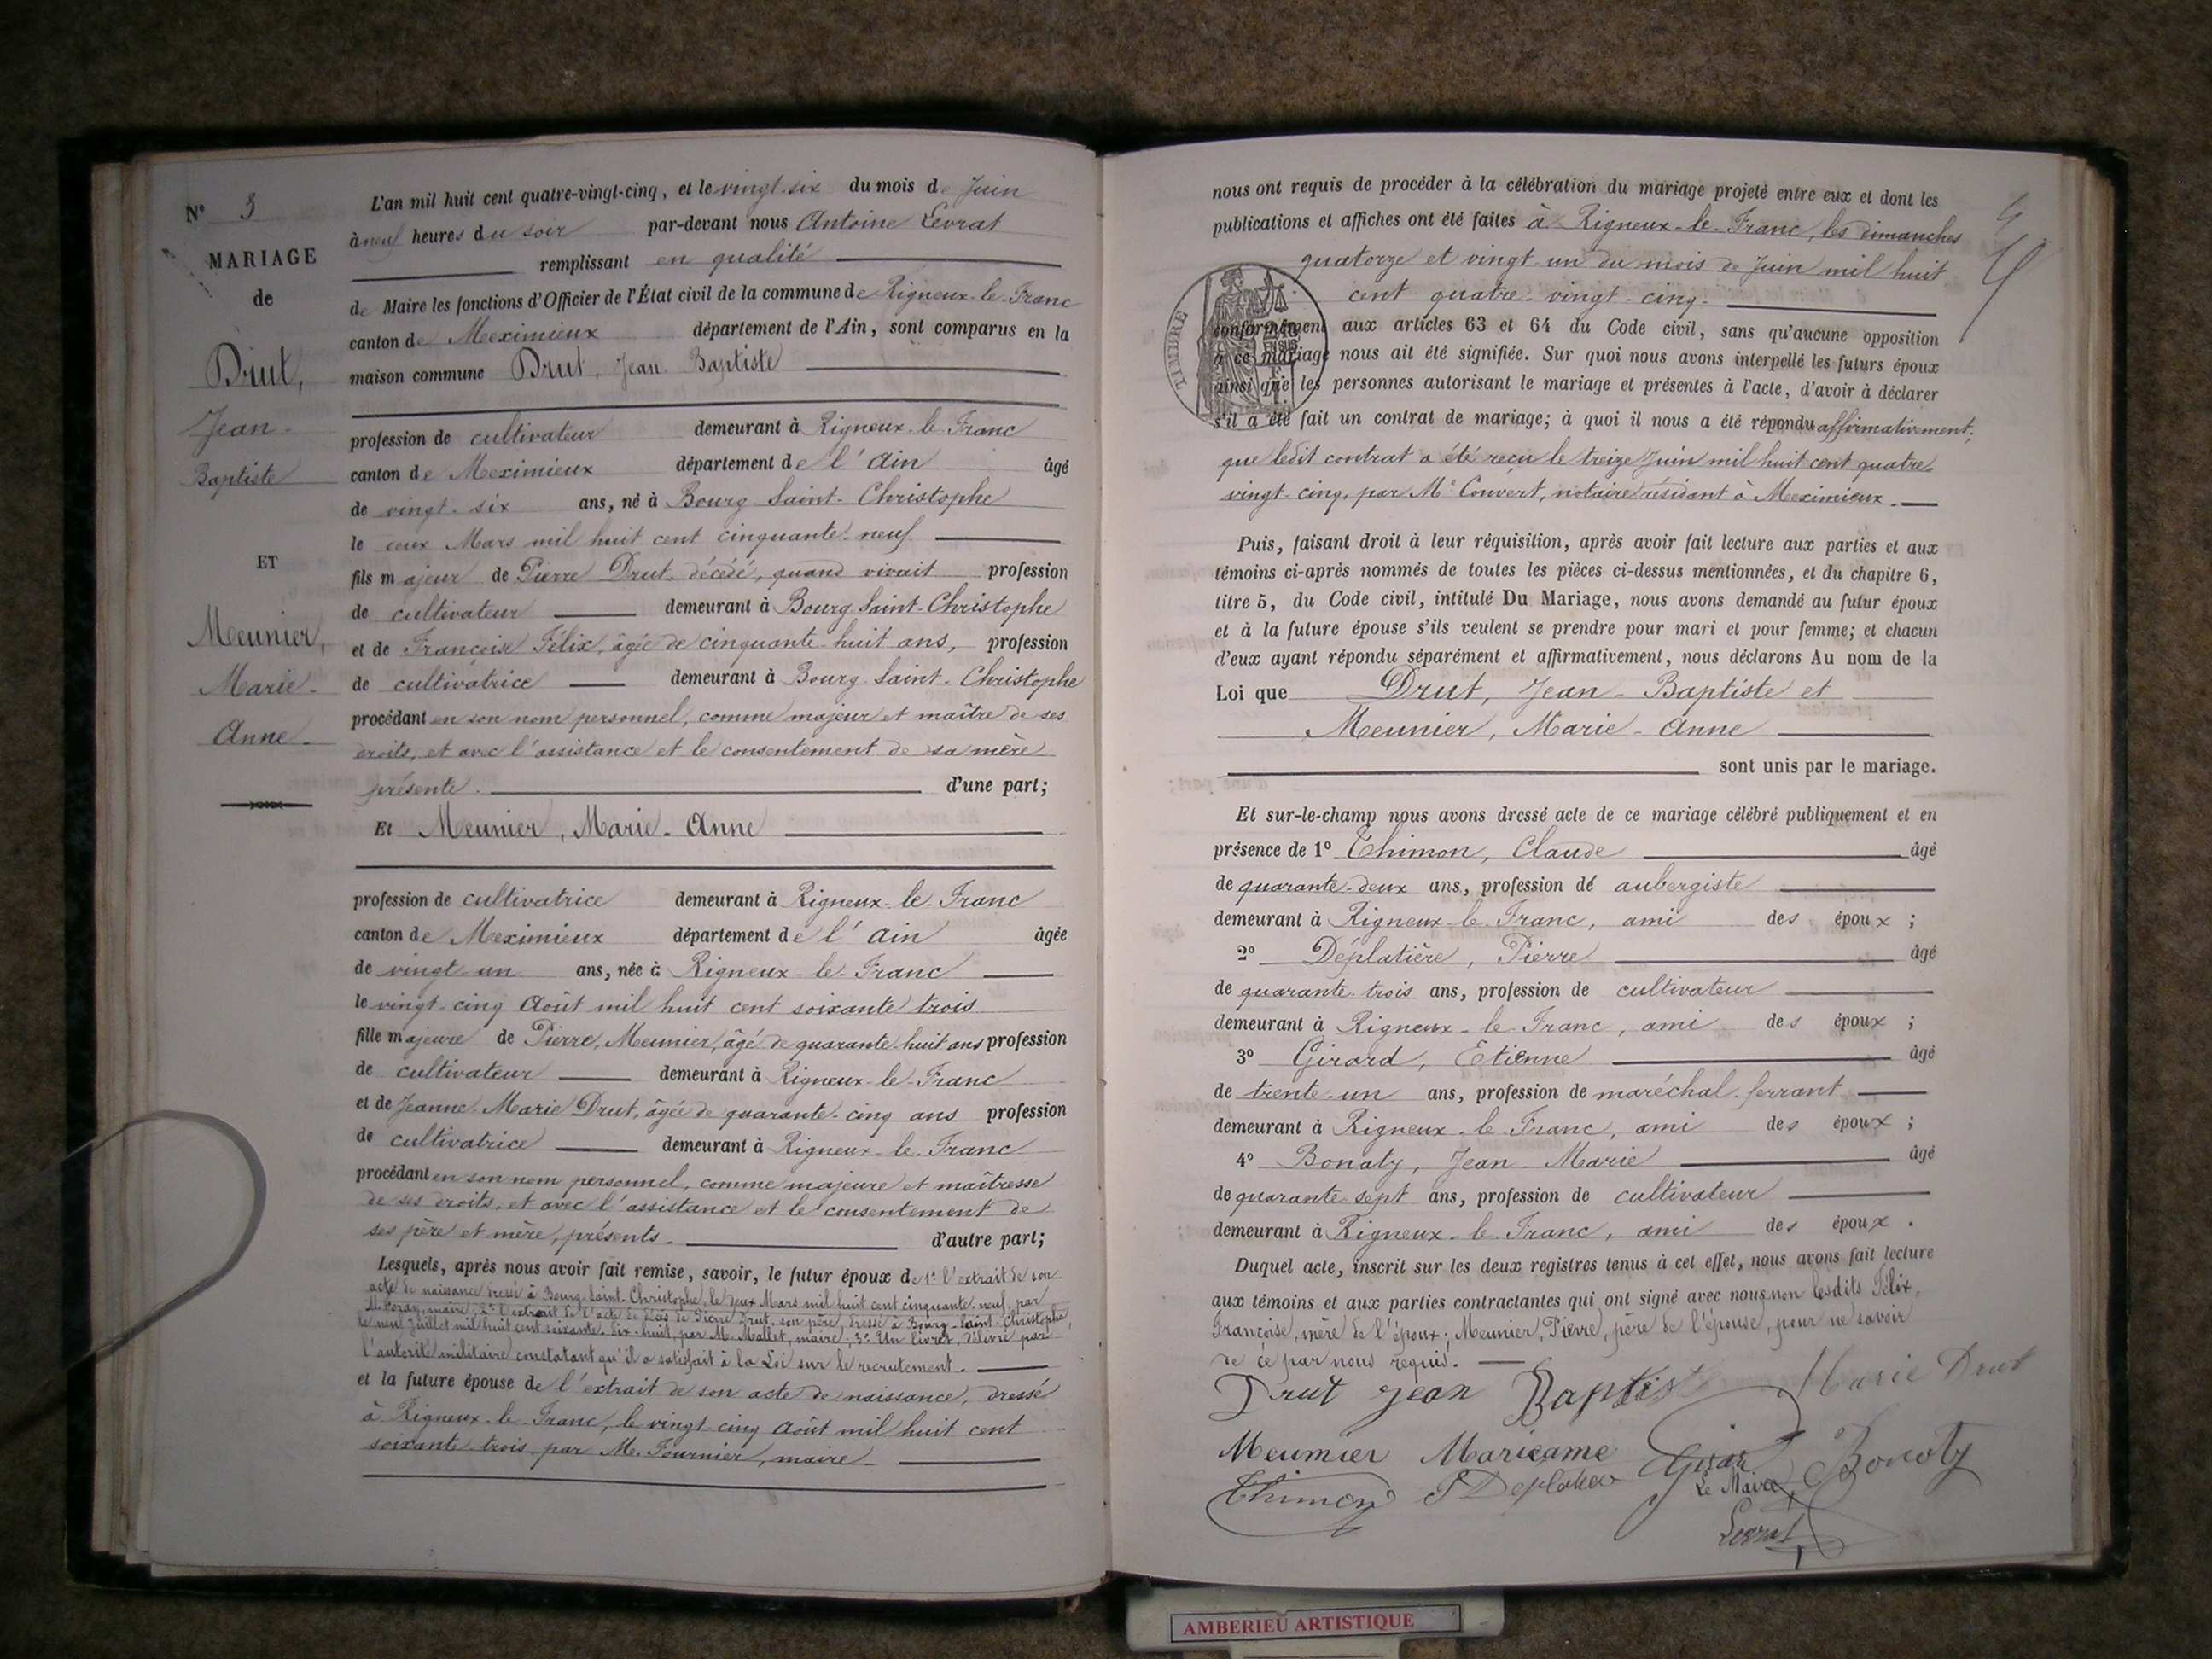 N° 3
MARIAGE
de
Drut,
Jean-
Baptiste
ET
Meunier,
Marie-
Anne
L'an mil huit cent quatre-vingt-cinq, et le vingt-six du mois de Juin
à neuf heures du soir par-devant nous Antoine Levrat
remplissant en qualité
de Maire les fonctions d'Officier de l'État civil de la commune de Rigneux-le-Franc
canton de Meximieux département de l'Ain, sont comparus en la
maison commune Drut, Jean-Baptiste
profession de cultivateur demeurant à Rigneux-le-Franc
canton de Meximieux département de l'Ain âgé
de vingt-six ans, né à Bourg Saint-Christophe
le deux Mars mil huit cent cinquante-neuf
fils majeur de Pierre Drut, décédé, quand vivait profession
de cultivateur demeurant à Bourg Saint-Christophe
et de Françoise Félix, âgée de cinquante-huit ans, profession
de cultivatrice demeurant à Bourg-Saint-Christophe
procédant en son nom personnel, comme majeur et maître de ses
droits, et avec l'assistance et le consentement de sa mère
présente. d'une part;
Et Meunier, Marie-Anne
profession de cultivatrice demeurant à Rigneux-le-Franc
canton de Meximieux département de l'Ain âgée
de vingt-un ans, née à Rigneux-le-Franc
le vingt-cinq Août mil huit cent soixante trois
fille majeure de Pierre, Meunier, âgé de quarante-huit ans profession
de cultivateur demeurant à Rigneux-le-Franc
et de Jeanne-Marie Drut, âgée de quarante-cinq ans profession
de cultivatrice demeurant à Rigneux-le-Franc
procédant en son nom personnel, comme majeure et maîtresse
de ses droits, et avec l'assistance et le consentement de
ses père et mère, présents. d'autre part;
Lesquels, après nous avoir fait remise, savoir, le futur époux de 1° l'extrait de son
acte de naissance dressé à Bourg-Saint-Christophe, le deux Mars mil huit cent cinquante-neuf, par
M. maire; 2° l'extrait de l'acte de décès de Pierre Drut, son père, dressé à Bourg-Saint-Christophe,
le neuf Juillet mil huit cent soixante-dix-huit, par M. Mallet, maire; 3° Un livret, délivré par
l'autorité militaire constatant qu'il a satisfait à la Loi sur le recrutement.
et la future épouse de l'extrait de son acte de naissance, dressé
à Rigneux-le-Franc, le vingt-cinq Août mil huit cent
soixante-trois, par M. Fournier, maire
nous ont requis de procéder à la célébration du mariage projeté entre eux et dont les
publications et affiches ont été faites à Rigneux-le-Franc, les dimanches
quatorze et vingt-un du mois de Juin mil huit
cent quatre-vingt-cinq.
TIMBRE
conformément aux articles 63 et 64 du Code civil, sans qu'aucune opposition
à ce mariage nous ait été signifiée. Sur quoi nous avons interpellé les futurs époux
ainsi que les personnes autorisant le mariage et présentes à l'acte, d'avoir à déclarer
s'il a été fait un contrat de mariage; à quoi il nous a été répondu affirmativement;
que ledit contrat a été reçu le treize Juin mil huit cent quatre-
vingt-cinq, par Me Convert, notaire résidant à Meximieux.
Puis, faisant droit à leur réquisition, après avoir fait lecture aux parties et aux
témoins ci-après nommés de toutes les pièces ci-dessus mentionnées, et du chapitre 6,
titre 5, du Code civil, intitulé Du Mariage, nous avons demandé au futur époux
et à la future épouse s'ils veulent se prendre pour mari et pour femme; et chacun
d'eux ayant répondu séparément et affirmativement, nous déclarons Au nom de la
Loi que Drut, Jean-Baptiste et
Meunier, Marie-Anne
sont unis par le mariage.
Et sur-le-champ nous avons dressé acte de ce mariage célébré publiquement et en
présence de 1° Thimon, Claude âgé
de quarante-deux ans, profession de aubergiste
demeurant à Rigneux-le-Franc, ami des époux;
2° Déplatière, Pierre âgé
de quarante-trois ans, profession de cultivateur
demeurant à Rigneux-le-Franc, ami des époux;
3° Girard, Etienne âgé
de trente-un ans, profession de maréchal-ferrant
demeurant à Rigneux-le-Franc, ami des époux;
4° Bonaty, Jean-Marie âgé
de quarante-sept ans, profession de cultivateur
demeurant à Rigneux-le-Franc, ami des époux.
Duquel acte, inscrit sur les deux registres tenus à cet effet, nous avons fait lecture
aux témoins et aux parties contractantes qui ont signé avec nous, non lesdits Félix,
Françoise, mère de l'époux; Meunier, Pierre, père de l'épouse, pour ne savoir
de ce par nous requis.
Drut Jean Baptiste Marie Drut
Meumier Marieanne Girar Bonoty
Thimon P Deplatier Le Maire,
Levrat
AMBERIEU ARTISTIQUE